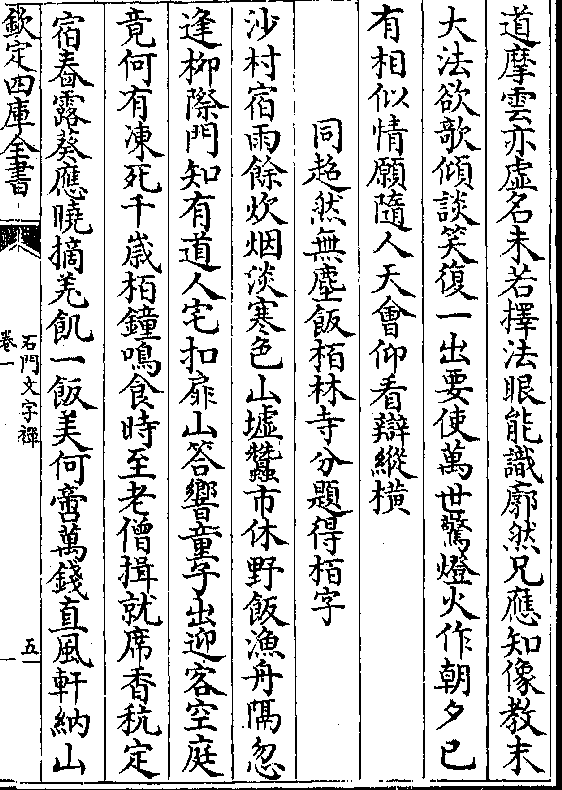 道摩雲亦虚名未若擇法眼能識廓然兄應知像教末
大法欲歌傾談笑復一出要使萬世驚燈火作朝夕已
有相似情願隨人天會仰看辯縱橫
同超然無塵飯栢林寺分題得栢字
沙村宿雨餘炊烟淡寒色山墟蠶市休野飯漁舟隔忽
逢栁際門知有道人宅扣扉山答響童子出迎客空庭
竟何有凍死千歳栢鐘鳴食時至老僧揖就席香秔定
宿舂露葵應曉摘羌飢一飯美何啻萬錢直風軒納山
欽定四庫全書
石門文字禪
卷一
五